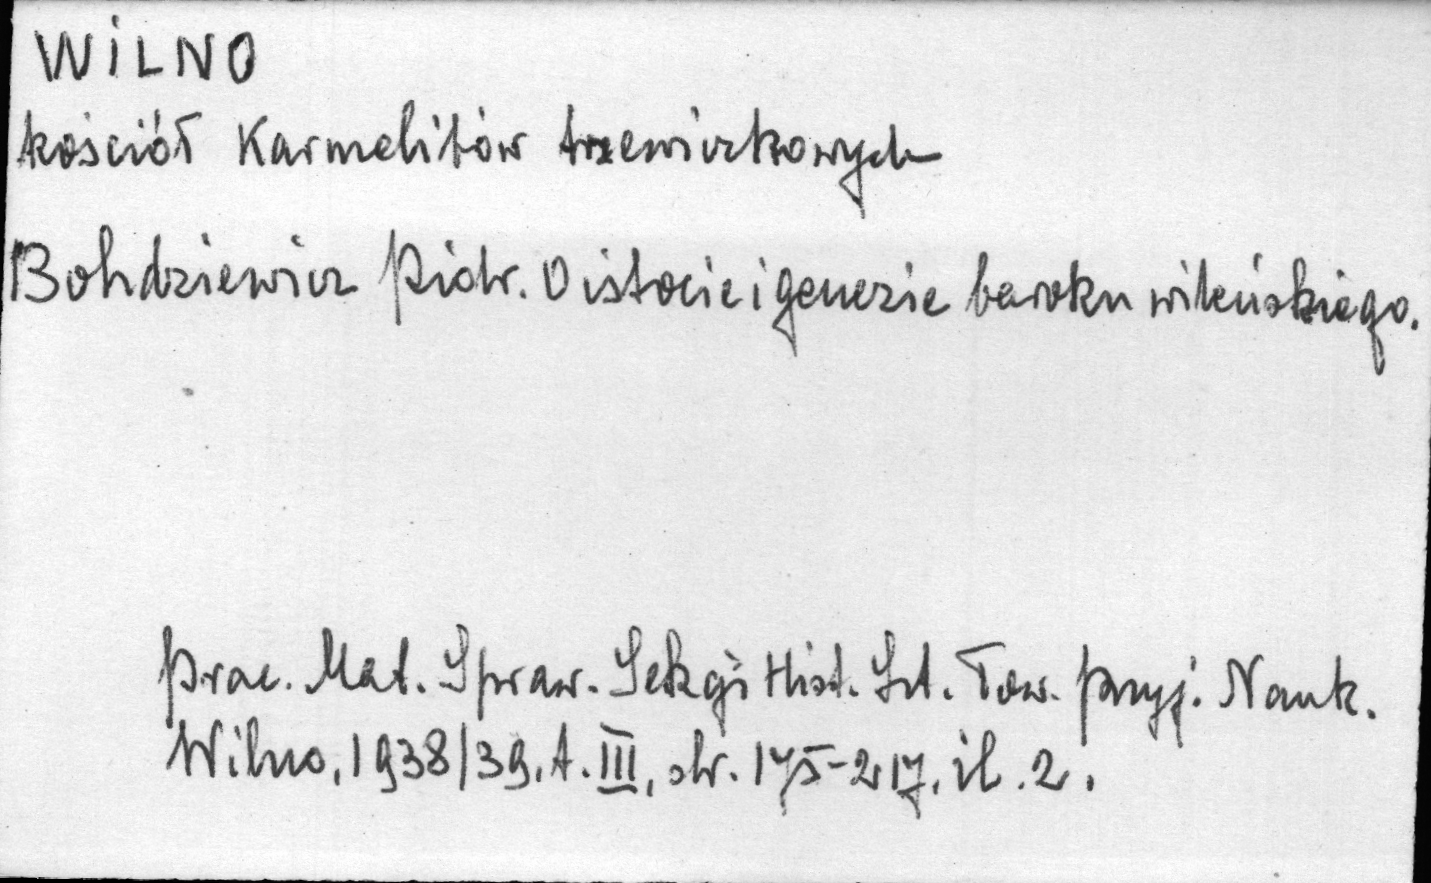 WILNO
kościół Karmelitów trzewiczkowych
Bohdziewicz Piotr. O istocie i genezie baroku wileńskiego.
Prac. Mat. Spraw. Sekcji Hist. Szt. Tow. Przyj. Nauk.
Wilno, 1938/39, t. III, str. 175-217, il. 2.